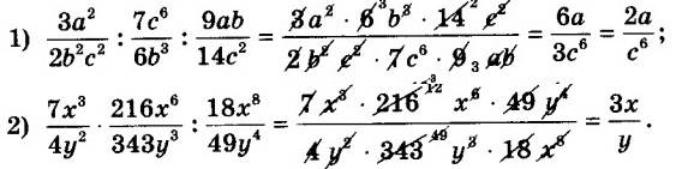 1) \frac{3a^2}{2b^2c^2} : \frac{7c^6}{6b^3} : \frac{9ab}{14c^2} = \frac{3a^2 \cdot 6^3 b^3 \cdot 14^2 c^2}{2 b^2 c^2 \cdot 7c^6 \cdot 9_3 ab} = \frac{6a}{3c^6} = \frac{2a}{c^6};
2) \frac{7x^3}{4y^2} \cdot \frac{216x^6}{343y^3} : \frac{18x^8}{49y^4} = \frac{7x^3 \cdot 216^{12} x^6 \cdot 49 y^4}{4y^2 \cdot 343^{49} y^3 \cdot 18 x^8} = \frac{3x}{y}.